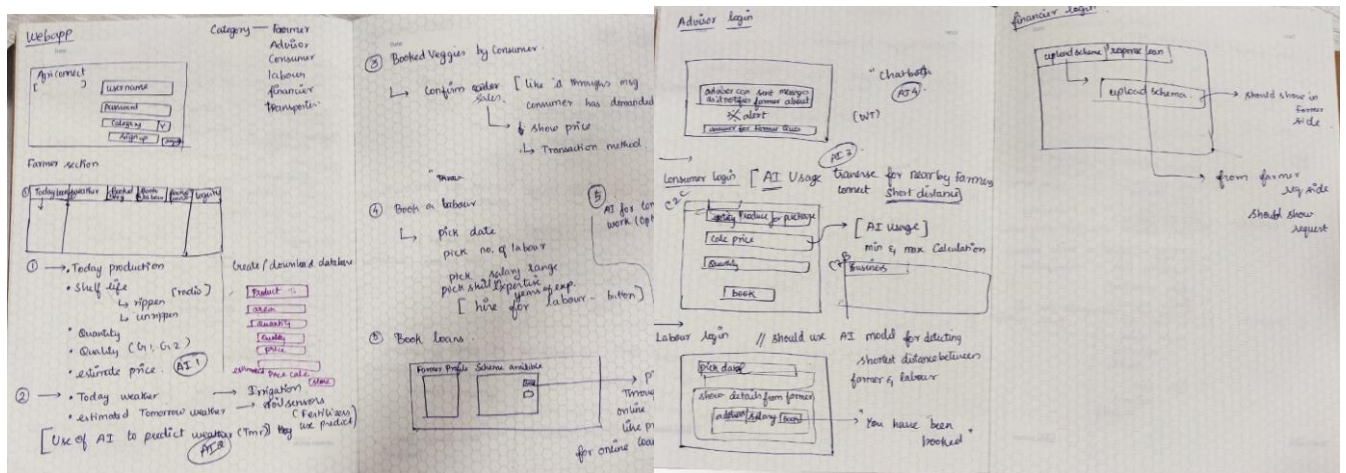 Webapp
Category — Farmer
Advisor
Consumer
labour
financier
transporter
Agri connect
username
Password
Category V
Sign up
Farmer section
Today
weather
labour
① → • Today production
• Shelf life [radio]
↳ rippen
↳ unrippen
• Quantity
• Quality (G1, G2)
• estimate price. AI 1
Create/download database
Product
area
Quantity
Quality
price
estimate price calc
store
② → • Today weather → Irrigation
• estimated Tomorrow weather → soil sensors
(Fertilizers)
[Use of AI to predict weather (Tmr)] use predict
③ Booked Veggies by Consumer.
↳ Confirm
sales.
[like a through msg
consumer has demanded
↳ show price
↳ Transaction method.
④ Book a labour
↳ pick date
pick no. of labour
pick salary range
pick skill Expertise
years of exp.
[hire for labour - button]
⑤
AI for
work
⑤ Book loans.
Farmer Profile
Scheme available
Through
online
like
for online
Advisor login
advisor can sent messages
as it notifies farmer about
alert
answer for farmer
"Chatbot
AI 4
(WT)
AI 3
→
Consumer login [AI Usage transverse for nearby farmers
connect short distance]
Produce for package
calc price
Quantity
book
→ [AI usage]
min & max Calculation
Business
→
Labour login // should use AI model for detecting
shortest distance between
farmer & labour
pick date
show details from farmer
address salary book
→ "You have been
booked"
financier login.
upload scheme response loan
upload schema.
→ should show in
farmer
side.
→ from farmer
req side
should show
request